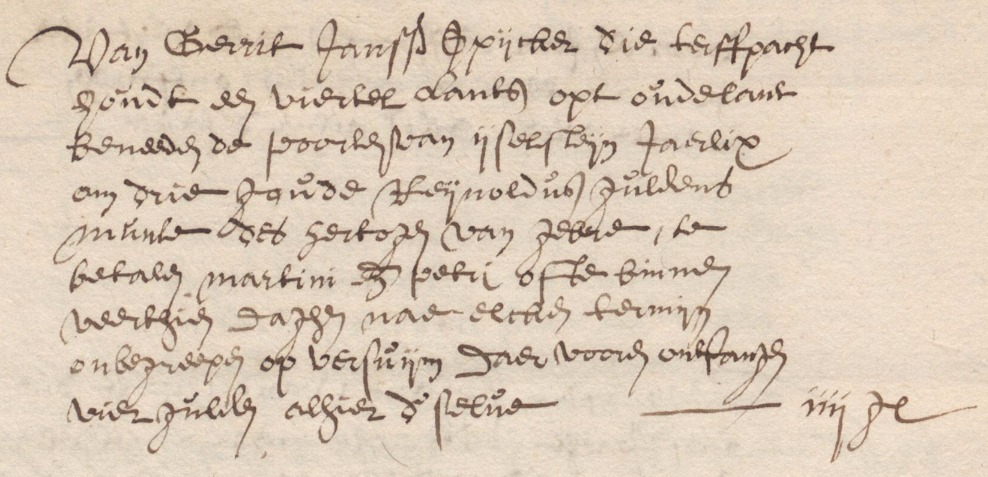 Van Gerrit Janssß Spijcker die terffpacht
houdt een viertel lants opt oudelant
beneeden de poorten van ijselsteijn Jaerlix
om drie goude Reijnoldus guldens
munte des hertogen van gelre, te
betalen martini et petri ofte binnen
veerthien daghen nae elcken termijn
onbegreepen op versuijm daer vooren ontfangen
vier gulden alhier d' selve iiij gl